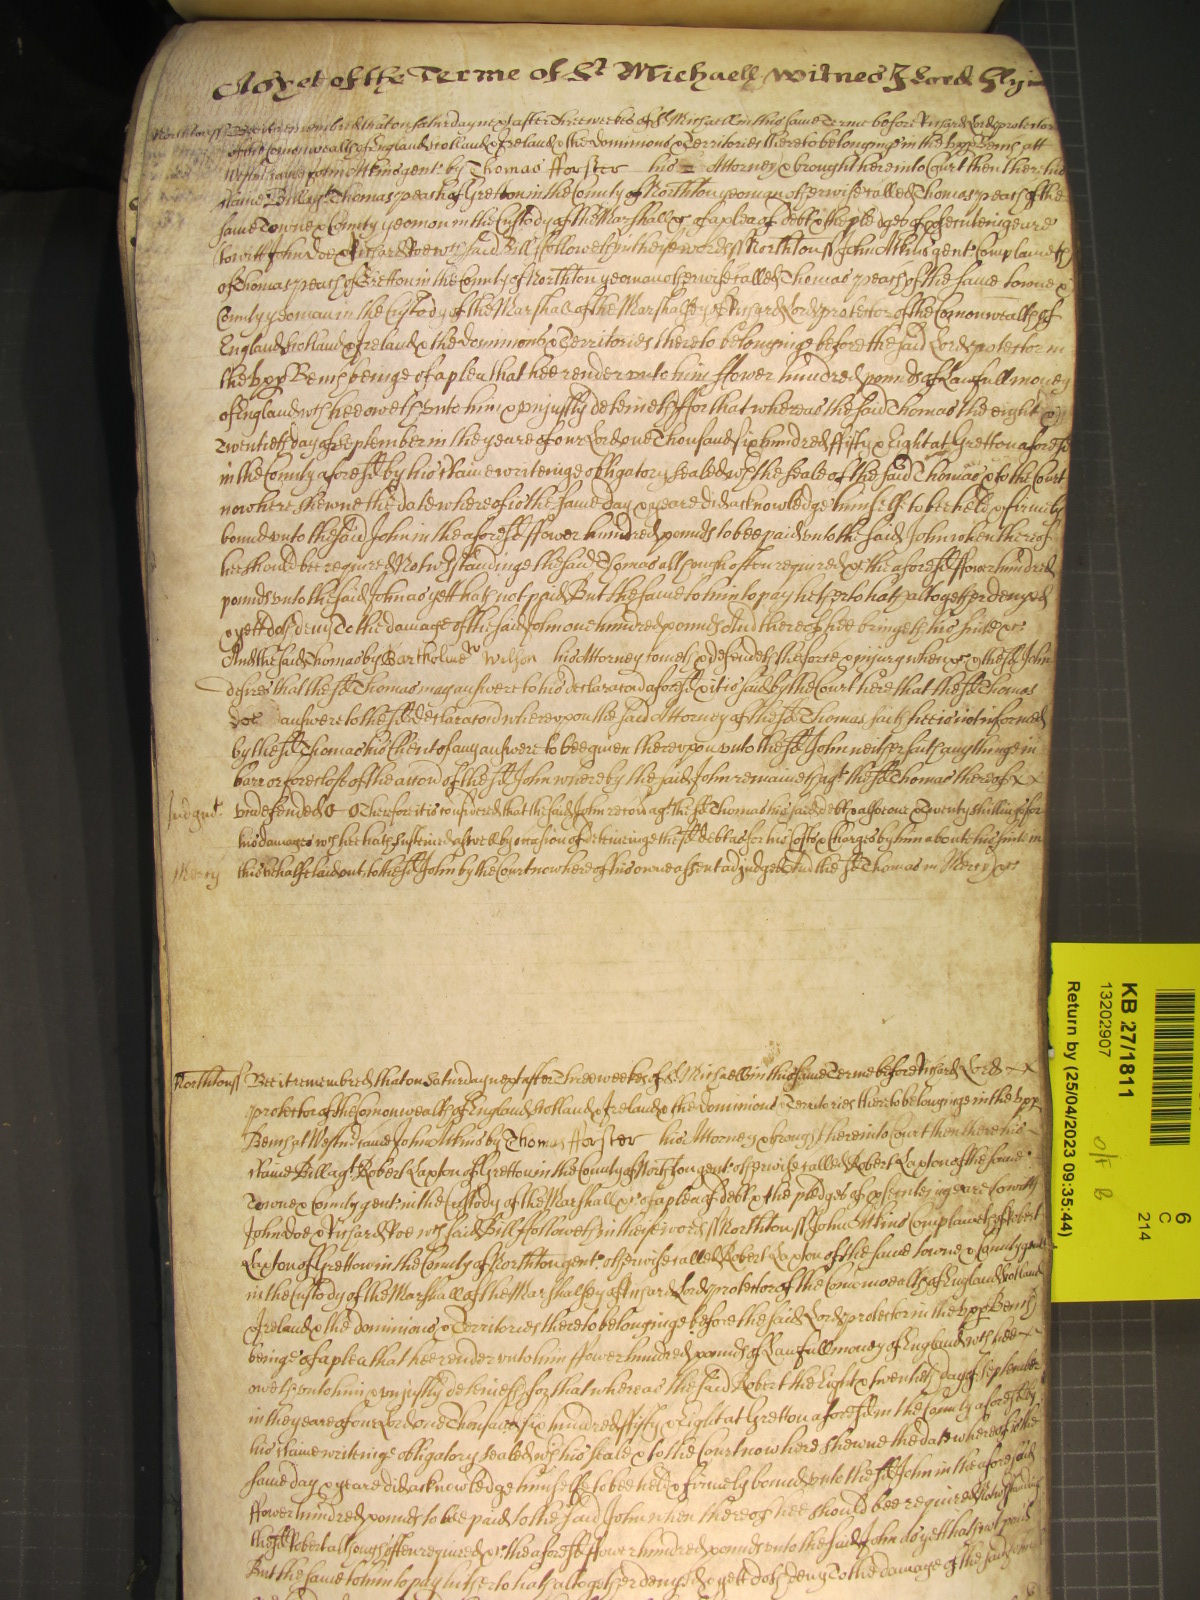 As yet of the Terme of St Michaell witnes J Lord Glyn
Northton ss Bee it remembred that on Saturday next after three weekes of St Michaell in this same Terme before Richard Lord protector
of the Comonwealth of England Scotland & Ireland & the dominions & Territories thereto belonginge in the upp Bench att
Westm came John Atkins gent by Thomas fforster his Attorney & brought here into Court then there his
Certaine Bill agt Thomas peach of Gretton in the County of Northton yeoman otherwise called Thomas peach of the
same Towne & County yeoman in the Custody of the Marshall &c of a plea of debt & the pledges of prosecuteinge are
to witt John Doe & Richard Roe wch said Bill followeth in these words ss Northton ss John Atkins gent Complaineth
of Thomas peach of Gretton in the County of Northton yeoman otherwise called Thomas peach of the same towne &
County yeoman in the Custody of the Marshall of the Marshalsey of Richard Lord protector of the Comonwealth of
England Scotland & Ireland & the dominions & Territories thereto belonginge before the said Lord protector in
the upp Bench beinge of a plea that hee render unto him ffower hundred pounds of Lawfull money
of England wch hee oweth unto him & unjustly deteineth ffor that whereas the said Thomas the eight &
Twentieth day of September in the yeare of our Lord one Thousand six hundred ffifty & Eight at Gretton aforesd
in the County aforesd by his Certaine writeinge obligatory sealed wth the seale of the said Thomas & to the Court
now here shewne the date whereof is the same day & yeare did acknowledge himselfe to bee held & firmely
bound unto the said John in the aforesd ffower hundred pounds to bee paid unto the said John when thereof
hee should bee required Notwthstandinge the said Thomas although often required &c the aforesd ffower hundred
pounds unto the said John as yett hath not paid But the same to him to pay hitherto hath altogether denyed
& yett doth deny To the damage of the said John one hundred pounds And thereof hee bringeth his suite &c
And the said Thomas by Bartholmew Wilson his Attorney cometh & defendeth the force & injury when &c & the sd John
desires that the sd Thomas may answere to his declaracon aforesd & it is said by the Court here that the sd Thomas
doe answere to the sd declaracon whereupon the said Attorney of the sd Thomas saith hee is not informed
by the sd Thomas his Client of any answere to bee given thereupon unto the sd John neither saith any thinge in
barr or foreclose of the accon of the sd John whereby the said John remaineth agt the sd Thomas thereof
Judgmt undefended Therefore it is considered that the said John recover agt the sd Thomas his said debt and alsoe Twenty shillings for
his damages wch hee hath susteined aswell by occasion of deteineinge the sd debt as for his Costs & Charges by him about his suite in
Mercy this behalfe laid out to the sd John by the Court now here of his owne assent adjudged And the sd Thomas in Mercy &c
Northton ss Bee it remembred that on Saturday next after three weekes of St Michaell in this same Terme before Richard Lord
protector of the Comonwealth of England Scotland & Ireland & the dominions & Territories thereto belonginge in the upp
Bench at Westm came John Atkins by Thomas fforster his Attorney & brought here into Court then there his
Certaine Bill agt Robert Laxton of Gretton in the County of Northton gent otherwise called Robert Laxton of the same
Towne & County gent in the Custody of the Marshall &c of a plea of debt & the pledges of prosecuteinge are to witt
John Doe & Richard Roe wch said Bill followeth in these words ss Northton ss John Atkins Complaineth of Robert
Laxton of Gretton in the County of Northton gent otherwise called Robert Laxton of the same towne & County gent
in the Custody of the Marshall of the Marshalsey of Richard Lord protector of the Comonwealth of England Scotland
& Ireland & the dominions & Territories thereto belonginge before the said Lord protector in the upp Bench
beinge of a plea that hee render unto him ffower hundred pounds of Lawfull money of England wch hee
oweth unto him & unjustly deteineth for that whereas the said Robert the Eight & twentieth day of September
in the yeare of our Lord one Thousand six hundred ffifty & Eight at Gretton aforesd in the County aforesd by
his Certaine writeinge obligatory sealed wth his seale & to the Court now here shewne the date whereof is the
same day & yeare did acknowledge himselfe to bee held & firmely bound unto the sd John in the aforesaid
ffower hundred pounds to bee paid to the said John when thereof hee should bee required Notwthstandinge
the sd Robert although often required &c the aforesd ffower hundred pounds unto the said John as yett hath not paid
But the same to him to pay hitherto hath altogether denyed & yett doth deny To the damage of the said John
KB 27/1811
13202907
Return by (25/04/2023 09:35:44)
O/F B
6
C
214